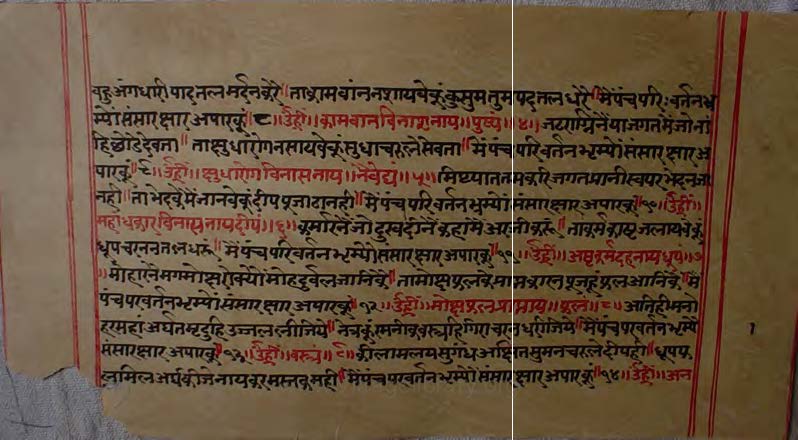 बहु अंगधारी पादतल मर्दन करै॥ ता कामवांन नशायवेकूं कुसुम तुम पदतल धरै॥ मैं पंच परिवर्तन भ्र
म्यो संसार क्षार अपारकूं ८॥ उँह्रीं॥ कामवानविनाशनाय॥ पुष्पं॥ ४॥ जठराग्नि नैं या जगत मैं जो नां
हि छोडे देवता॥ ता क्षुधा रोग नसायवेकूं सुधाचरु ले सेवता॥ मैं पंच परिवर्तन भ्रम्यो संसार क्षार अ
पारकूं ९॥ उँह्रीं॥ क्षुधारोग विनासनाय॥ नैवेद्यं॥ ५॥ मिथ्यातं तम करि जगत प्रानी स्वपर भेद न जा
नही॥ ता भेदवे मैं जानवेकूं दीप प्रजा ठानही॥ मैं पंच परिवर्तन भ्रम्यो संसार क्षार अपारकूं १०॥ उँह्रीं॥
महांधकार विनासनाय दीपं॥ ६॥ कर्मारि नैं जो दुख दीनैं कहां मैं अरजी करूं॥ ता कर्म काष्ट जलायवेकूं
धूप चरननतल धरूं॥ मैं पंच परिवर्तन भ्रम्यो संसार क्षार अपारकूं ११॥ उँह्रीं॥ अष्टकर्मदहनाय धूपं॥ ७
॥ मोहारि नैं मग मोक्ष रोक्यो मोह दुर्बल जानिकूं॥ ता मोक्षफलके काल पूजहूं फल आनिकूं॥ मैं
पंच परवर्तन भ्रम्यो संसार क्षार अपारकूं १२॥ उँह्रीं॥ मोक्षफलप्राप्ताय॥ फलं॥ ८॥ अति ही मनो
हर महां अर्घत मृदुहि उज्जल लीजिये॥ मैं पंच परवर्तन भ्रम्यो
संसार क्षार अपारकूं १३॥ उँह्रीं॥ वस्त्रं॥ ९॥ कीलाल मलय सुगंध अक्षित सुमन चरु ले दीप ही॥ धूप फ
ल मिल अर्घ कीजे नायकर मस्तक मही॥ मैं पंच परवर्तन भ्रम्यो संसार क्षार अपारकूं १४॥ उँह्रीं॥ अन